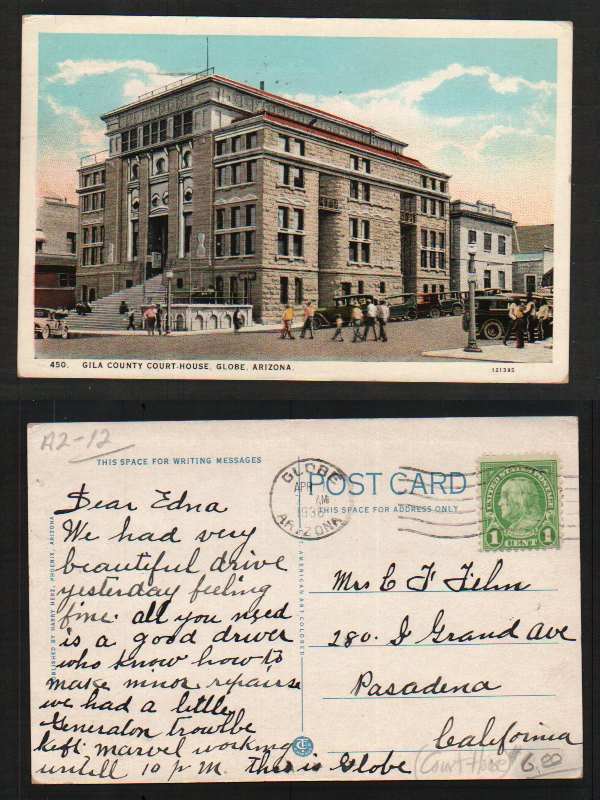 450. GILA COUNTY COURT-HOUSE, GLOBE, ARIZONA.
121395
A2-12
THIS SPACE FOR WRITING MESSAGES
Dear Edna
We had very
beautiful drive
yesterday feeling
fine. all you need
is a good driver
who know how to
make minor repairse
we had a little
Generaton trowlbe
kept marvel working
untill 10 p M. this is Globe
PUBLISHED BY HARRY HERZ, PHOENIX, ARIZONA
AMERICAN ART COLORED
GLOBE
APR
AM
1936
ARIZONA
POST CARD
THIS SPACE FOR ADDRESS ONLY
UNITED STATES POSTAGE
1 CENT 1
Mrs C F
280. S Grand Ave
Pasadena
California
(Court House) $6.00